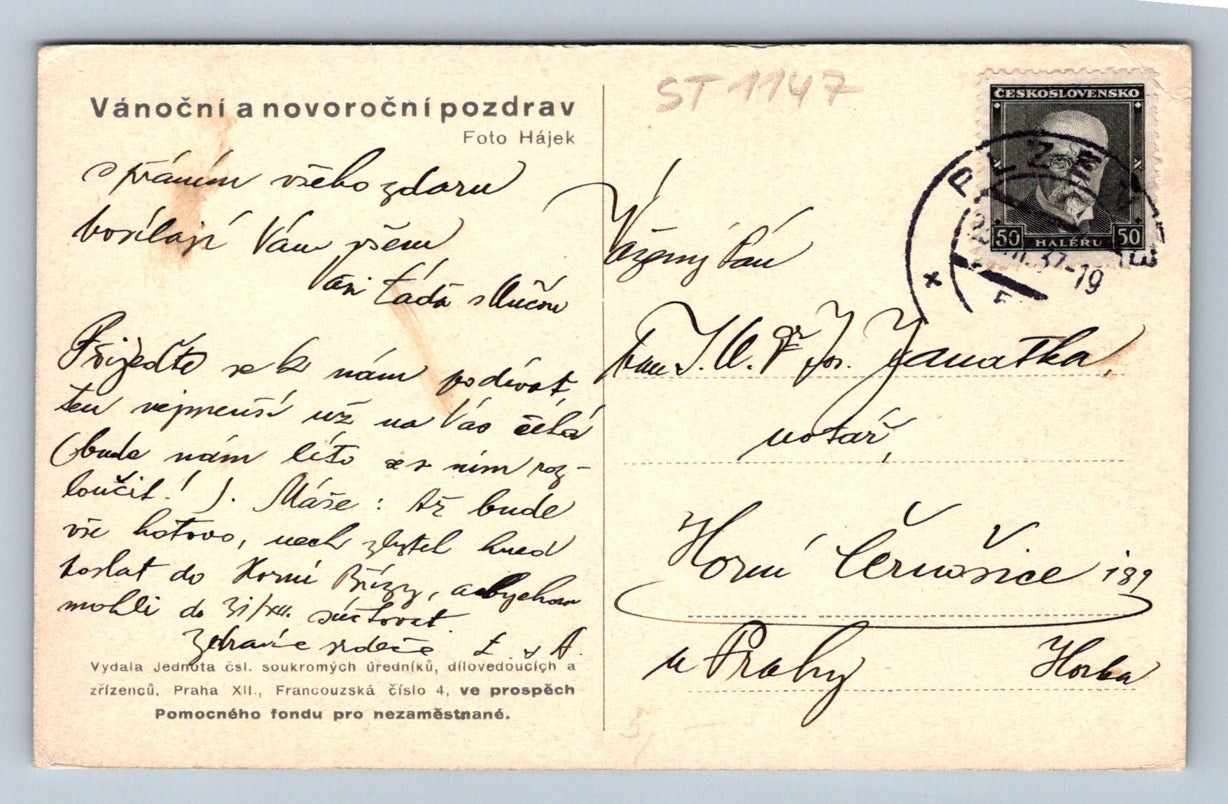 Vánoční a novoroční pozdrav
Foto Hájek
s přáním všeho zdaru
posílají Vám všem
Váni Láďa s
Přijeďte se k nám podívat,
ten nejmenší už na Vás čeká
(bude nám líto se s ním roz-
loučit! J. Máše: Až bude
vše hotovo, nech zbytek hned
poslat do Horní Břízy, abychom
mohli do 31/XII. súčtovat
Zdravíc srdečně L. s A.
Vydala Jednota čsl. soukromých úředníků, dílovedoucích a
zřízenců, Praha XII., Francouzská číslo 4, ve prospěch
Pomocného fondu pro nezaměstnané.
ST 1147
ČESKOSLOVENSKO
50 HALÉŘŮ 50
PLZEŇ
37-19
Vážený Pán
Pan J.U.Dr Jos. Janatka,
notář,
Horní Černošice 189
u Prahy Horka
5,-